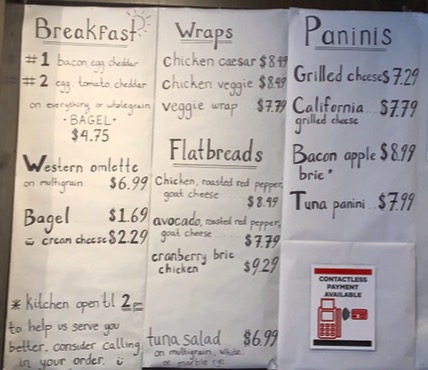 Breakfast
#1 bacon, egg, cheddar
#2 egg, tomato, cheddar
on everything or wholegrain
· BAGEL ·
$4.75
Western omlette
on multigrain $6.99
Bagel $1.69
cream cheese $2.29
* Kitchen open 'til 2pm
to help us serve you
better, consider calling
in your order.
Wraps
chicken caesar $8.49
chicken veggie $8.49
veggie wrap $7.79
Flatbreads
Chicken, roasted red pepper,
goat cheese
$8.49
avocado, roasted red pepper,
goat cheese
$7.79
cranberry brie
chicken $9.29
tuna salad $6.99
on multigrain, white
or marble rye
Paninis
Grilled cheese $7.29
California $7.79
grilled cheese
Bacon apple $8.99
brie*
Tuna panini $7.99
CONTACTLESS
PAYMENT
AVAILABLE